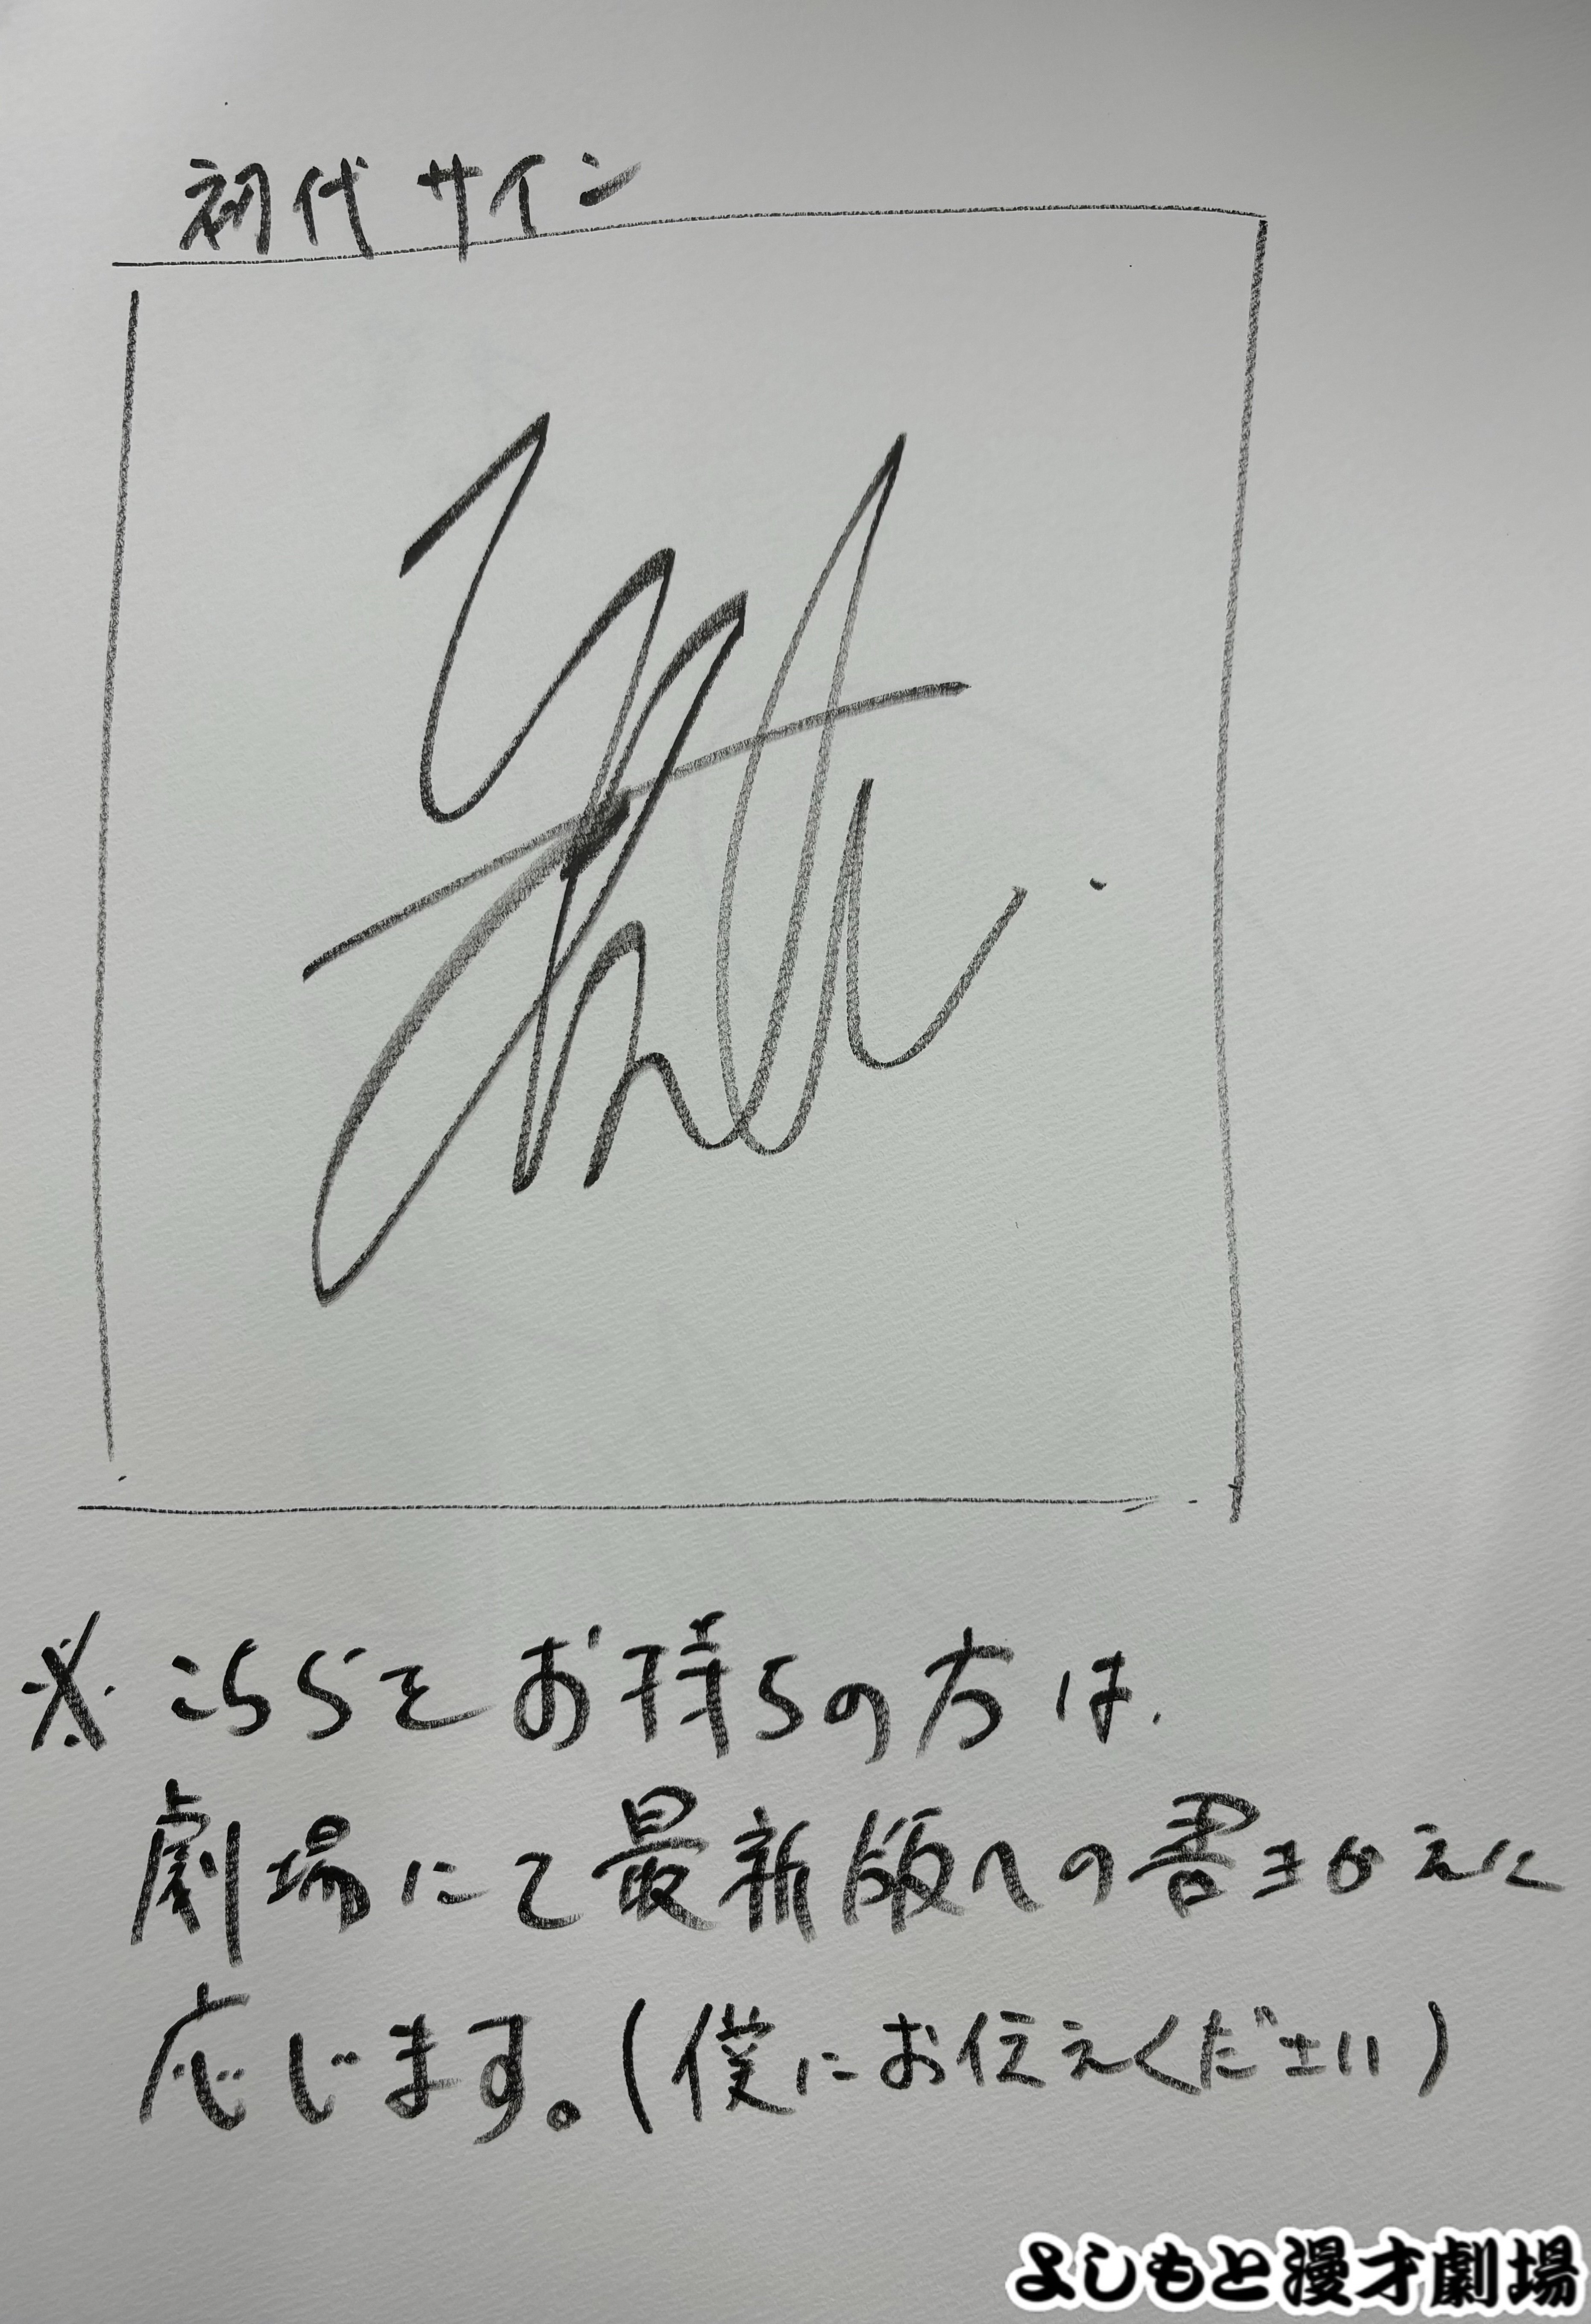 初代サイン
※こちらをお持ちの方は、
劇場にて最新版への書きかえに
応じます。(僕にお伝えください)
よしもと漫才劇場